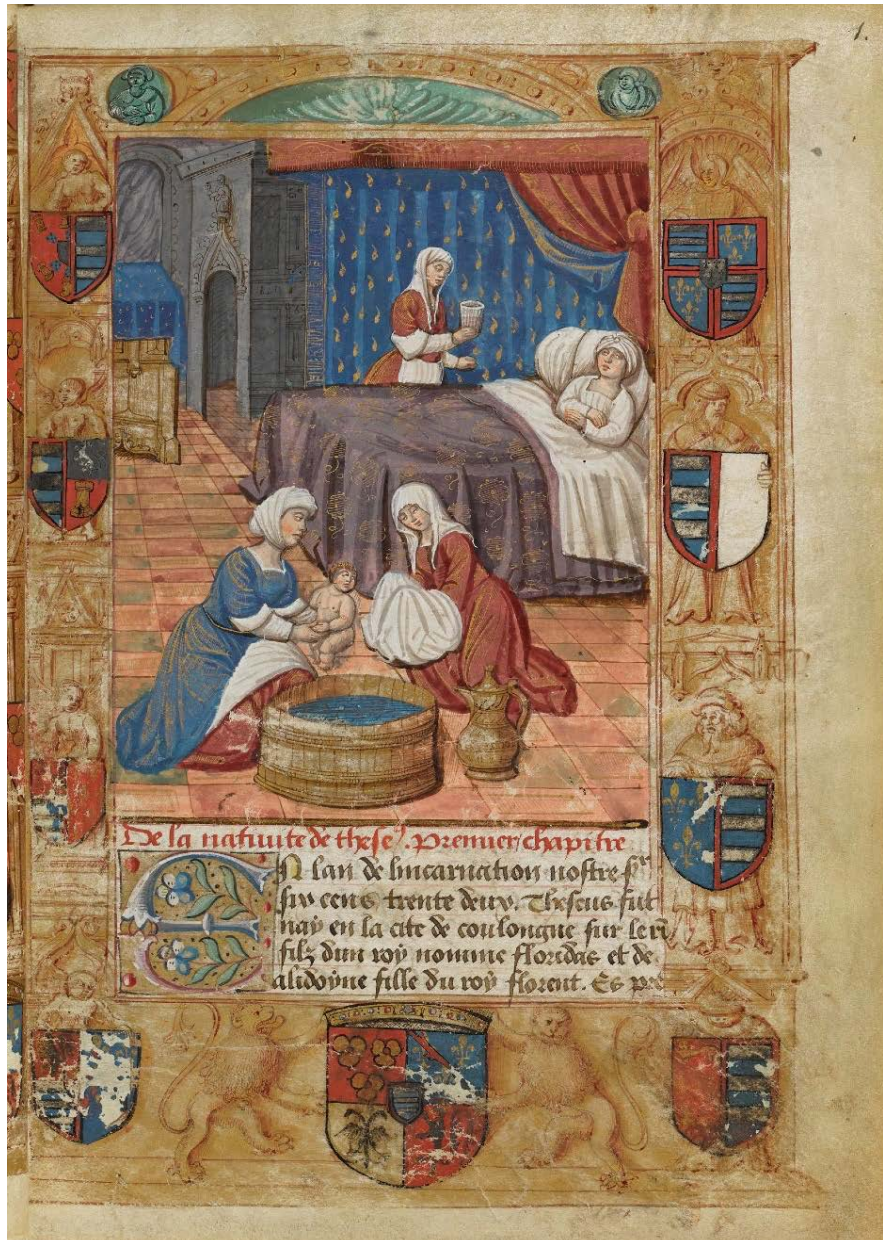 1.
De la natiuite de these⁹. Premier chapitre
EN lan de lincarnation nostre sr̄
six cens trente deux. Theseus fut
nay en la cite de coulongne sur le ri
filz dun roy nomme floridas et de
alidoyne fille du roy florent. Es